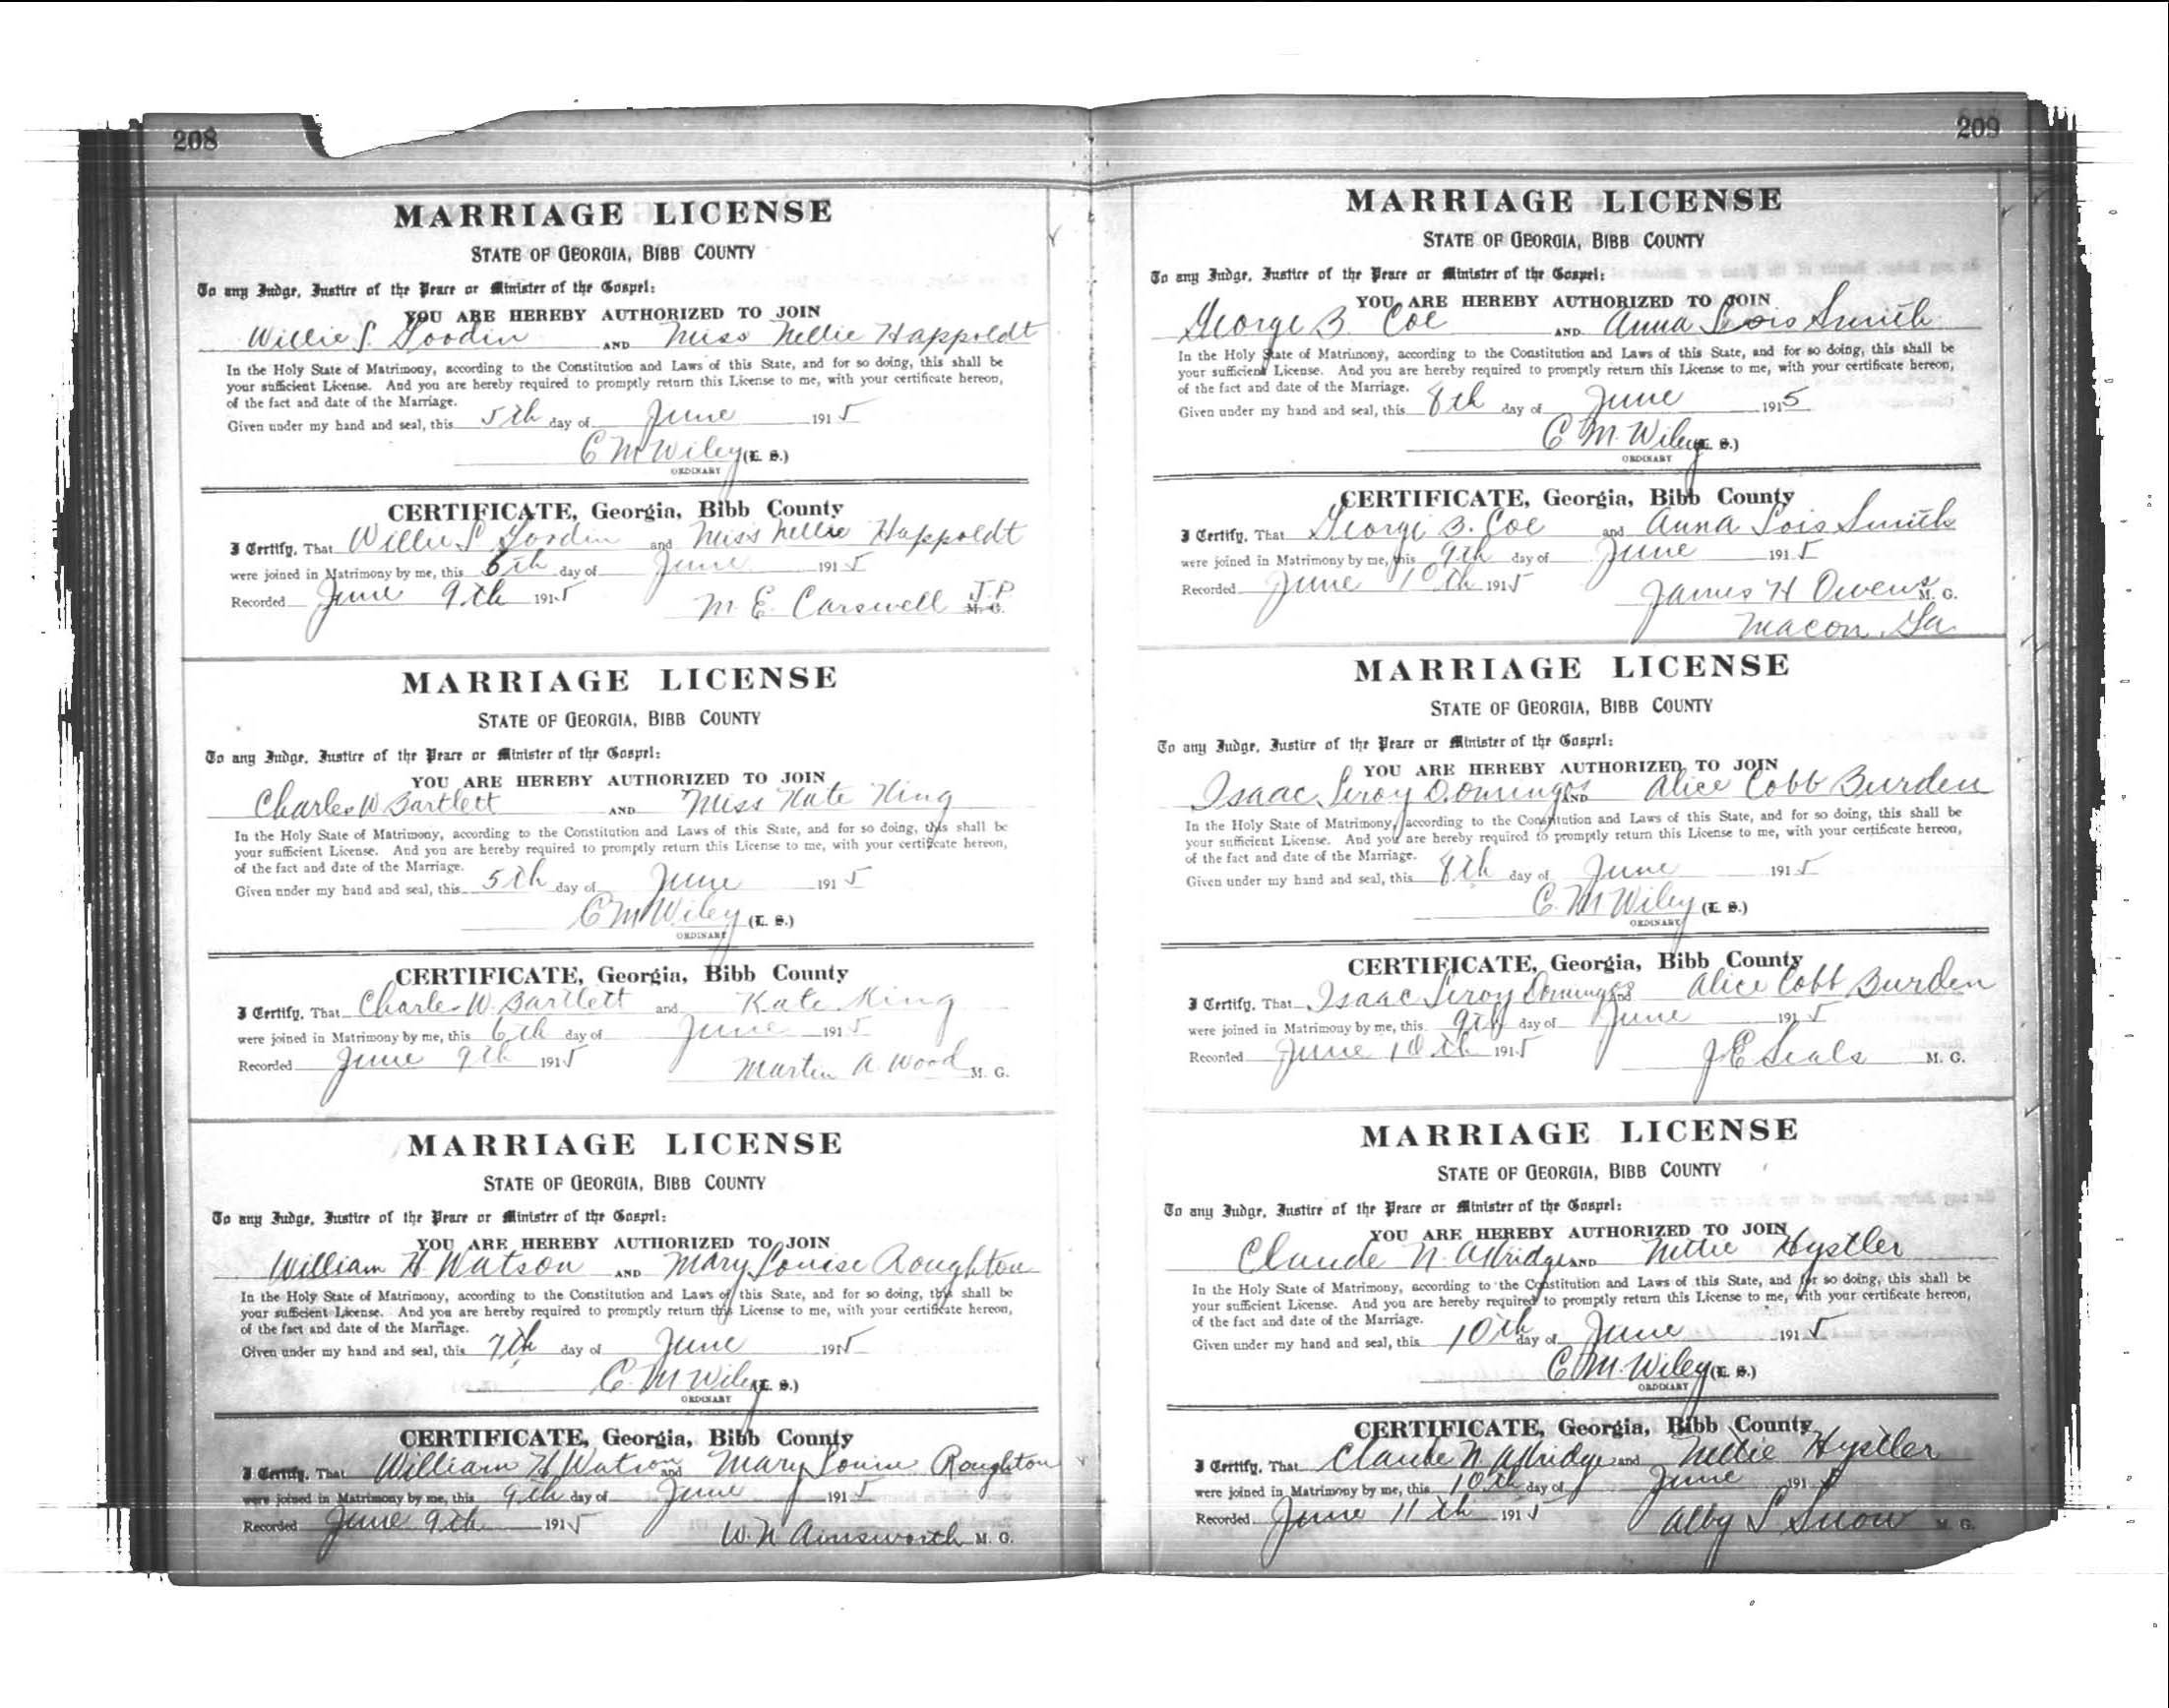 208
MARRIAGE LICENSE
STATE OF GEORGIA, BIBB COUNTY
To any Judge, Justice of the Peace or Minister of the Gospel:
YOU ARE HEREBY AUTHORIZED TO JOIN
Willie S. Goodin AND Miss Nellie Happoldt
In the Holy State of Matrimony, according to the Constitution and Laws of this State, and for so doing, this shall be
your sufficient License. And you are hereby required to promptly return this License to me, with your certificate hereon,
of the fact and date of the Marriage.
Given under my hand and seal, this 5th day of June 1915
C M Wiley (L. S.)
ORDINARY
CERTIFICATE, Georgia, Bibb County
I Certify, That Willie S Goodin and Miss Nellie Happoldt
were joined in Matrimony by me, this 6th day of June 1915
Recorded June 9th 1915 M. E. Carswell J.P. M. G.
MARRIAGE LICENSE
STATE OF GEORGIA, BIBB COUNTY
To any Judge, Justice of the Peace or Minister of the Gospel:
YOU ARE HEREBY AUTHORIZED TO JOIN
Charles W Bartlett AND Miss Kate King
In the Holy State of Matrimony, according to the Constitution and Laws of this State, and for so doing, this shall be
your sufficient License. And you are hereby required to promptly return this License to me, with your certificate hereon,
of the fact and date of the Marriage.
Given under my hand and seal, this 5th day of June 1915
C M Wiley (L. S.)
ORDINARY
CERTIFICATE, Georgia, Bibb County
I Certify, That Charles W. Bartlett and Kate King
were joined in Matrimony by me, this 6th day of June 1915
Recorded June 9th 1915 Martin A. Wood M. G.
MARRIAGE LICENSE
STATE OF GEORGIA, BIBB COUNTY
To any Judge, Justice of the Peace or Minister of the Gospel:
YOU ARE HEREBY AUTHORIZED TO JOIN
William H Watson AND Mary Louise Roughton
In the Holy State of Matrimony, according to the Constitution and Laws of this State, and for so doing, this shall be
your sufficient License. And you are hereby required to promptly return this License to me, with your certificate hereon,
of the fact and date of the Marriage.
Given under my hand and seal, this 7th day of June 1915
C. M Wiley (L. S.)
ORDINARY
CERTIFICATE, Georgia, Bibb County
I Certify, That William H Watson and Mary Louise Roughton
were joined in Matrimony by me, this 9th day of June 1915
Recorded June 9th 1915 W. N Ainsworth M. G.
209
MARRIAGE LICENSE
STATE OF GEORGIA, BIBB COUNTY
To any Judge, Justice of the Peace or Minister of the Gospel:
YOU ARE HEREBY AUTHORIZED TO JOIN
George B. Coe AND Anna Lois Smith
In the Holy State of Matrimony, according to the Constitution and Laws of this State, and for so doing, this shall be
your sufficient License. And you are hereby required to promptly return this License to me, with your certificate hereon,
of the fact and date of the Marriage.
Given under my hand and seal, this 8th day of June 1915
C M. Wiley (L. S.)
ORDINARY
CERTIFICATE, Georgia, Bibb County
I Certify, That George B. Coe and Anna Lois Smith
were joined in Matrimony by me, this 9th day of June 1915
Recorded June 10th 1915 James H Owens M. G.
Macon, Ga
MARRIAGE LICENSE
STATE OF GEORGIA, BIBB COUNTY
To any Judge, Justice of the Peace or Minister of the Gospel:
YOU ARE HEREBY AUTHORIZED TO JOIN
Isaac Leroy Domingos AND Alice Cobb Burden
In the Holy State of Matrimony, according to the Constitution and Laws of this State, and for so doing, this shall be
your sufficient License. And you are hereby required to promptly return this License to me, with your certificate hereon,
of the fact and date of the Marriage.
Given under my hand and seal, this 8th day of June 1915
C. M Wiley (L. S.)
ORDINARY
CERTIFICATE, Georgia, Bibb County
I Certify, That Isaac Leroy Domingos and Alice Cobb Burden
were joined in Matrimony by me, this 9th day of June 1915
Recorded June 10th 1915 J E Seals M. G.
MARRIAGE LICENSE
STATE OF GEORGIA, BIBB COUNTY
To any Judge, Justice of the Peace or Minister of the Gospel:
YOU ARE HEREBY AUTHORIZED TO JOIN
Claude N. Allridge AND Nettie Hystler
In the Holy State of Matrimony, according to the Constitution and Laws of this State, and for so doing, this shall be
your sufficient License. And you are hereby required to promptly return this License to me, with your certificate hereon,
of the fact and date of the Marriage.
Given under my hand and seal, this 10th day of June 1915
C. M. Wiley (L. S.)
ORDINARY
CERTIFICATE, Georgia, Bibb County
I Certify, That Claude N Allridge and Nettie Hystler
were joined in Matrimony by me, this 10th day of June 1915
Recorded June 11th 1915 Alby S Snow M. G.